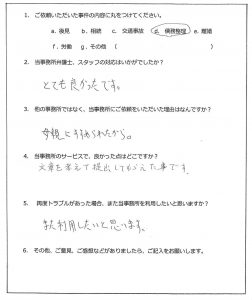 1. ご依頼いただいた事件の内容に丸をつけてください。
a. 後見 b. 相続 c. 交通事故 d. 債務整理 e. 離婚
f. 労働 g. その他 ( )
2. 当事務所弁護士、スタッフの対応はいかがでしたか?
とても良かったです。
3. 他の事務所ではなく、当事務所にご依頼をいただいた理由はなんですか?
母親にすすめられたから。
4. 当事務所のサービスで、良かった点はどこですか?
文章を考えて提出してもらえた事です
5. 再度トラブルがあった場合、また当事務所を利用したいと思いますか?
また利用したいと思います。
6. その他、ご意見、ご感想などがありましたら、ご記入をお願いします。